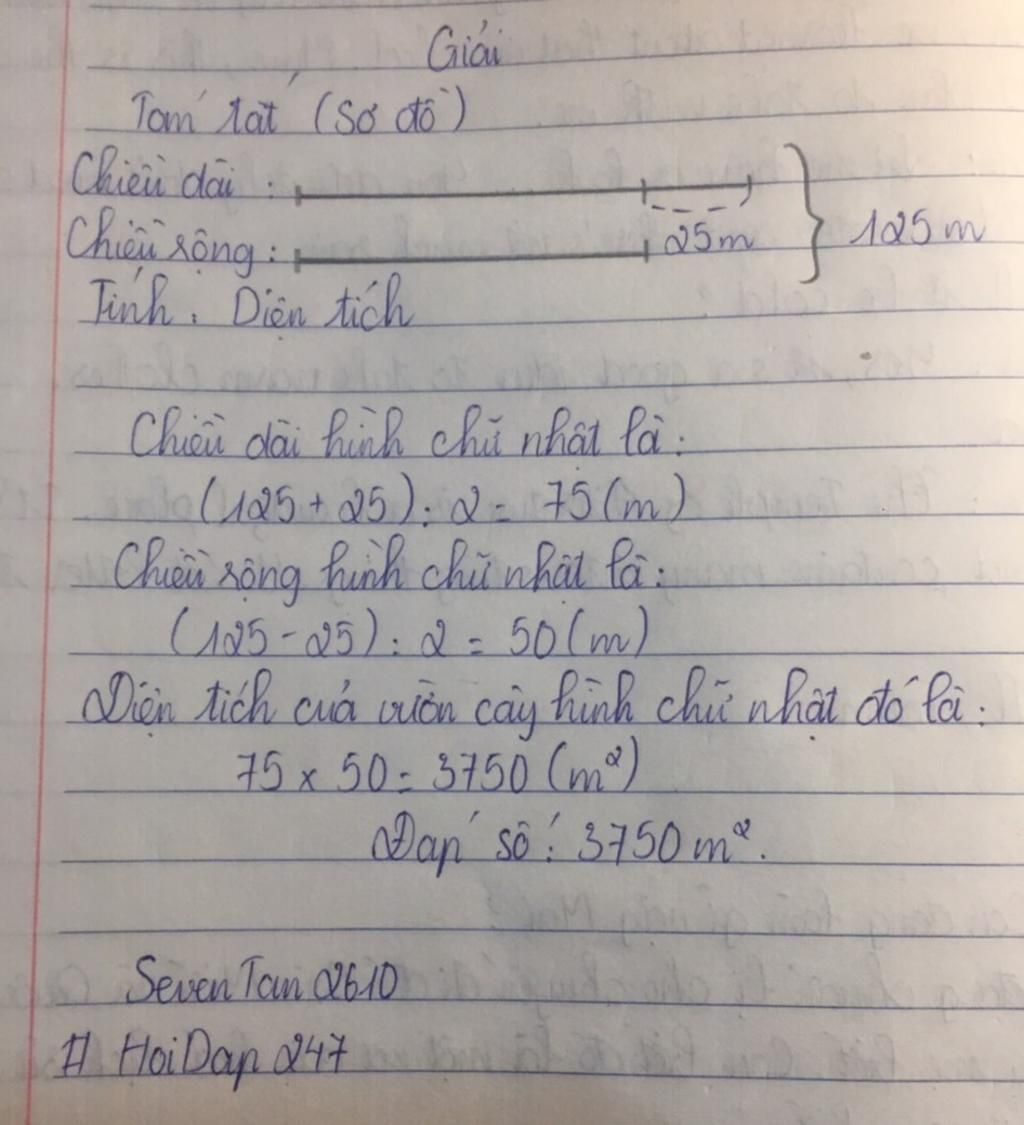 Giải
Tóm tắt (Sơ đồ)
Chiều dài :
Chiều rộng : 25m 125m
Tính : Diện tích
Chiều dài hình chữ nhật là :
(125 + 25) : 2 = 75 (m)
Chiều rộng hình chữ nhật là :
(125 - 25) : 2 = 50 (m)
Diện tích của vườn cây hình chữ nhật đó là :
75 x 50 = 3750 (m²)
Đáp số : 3750 m².
SevenTan2610
# HoiDap 247